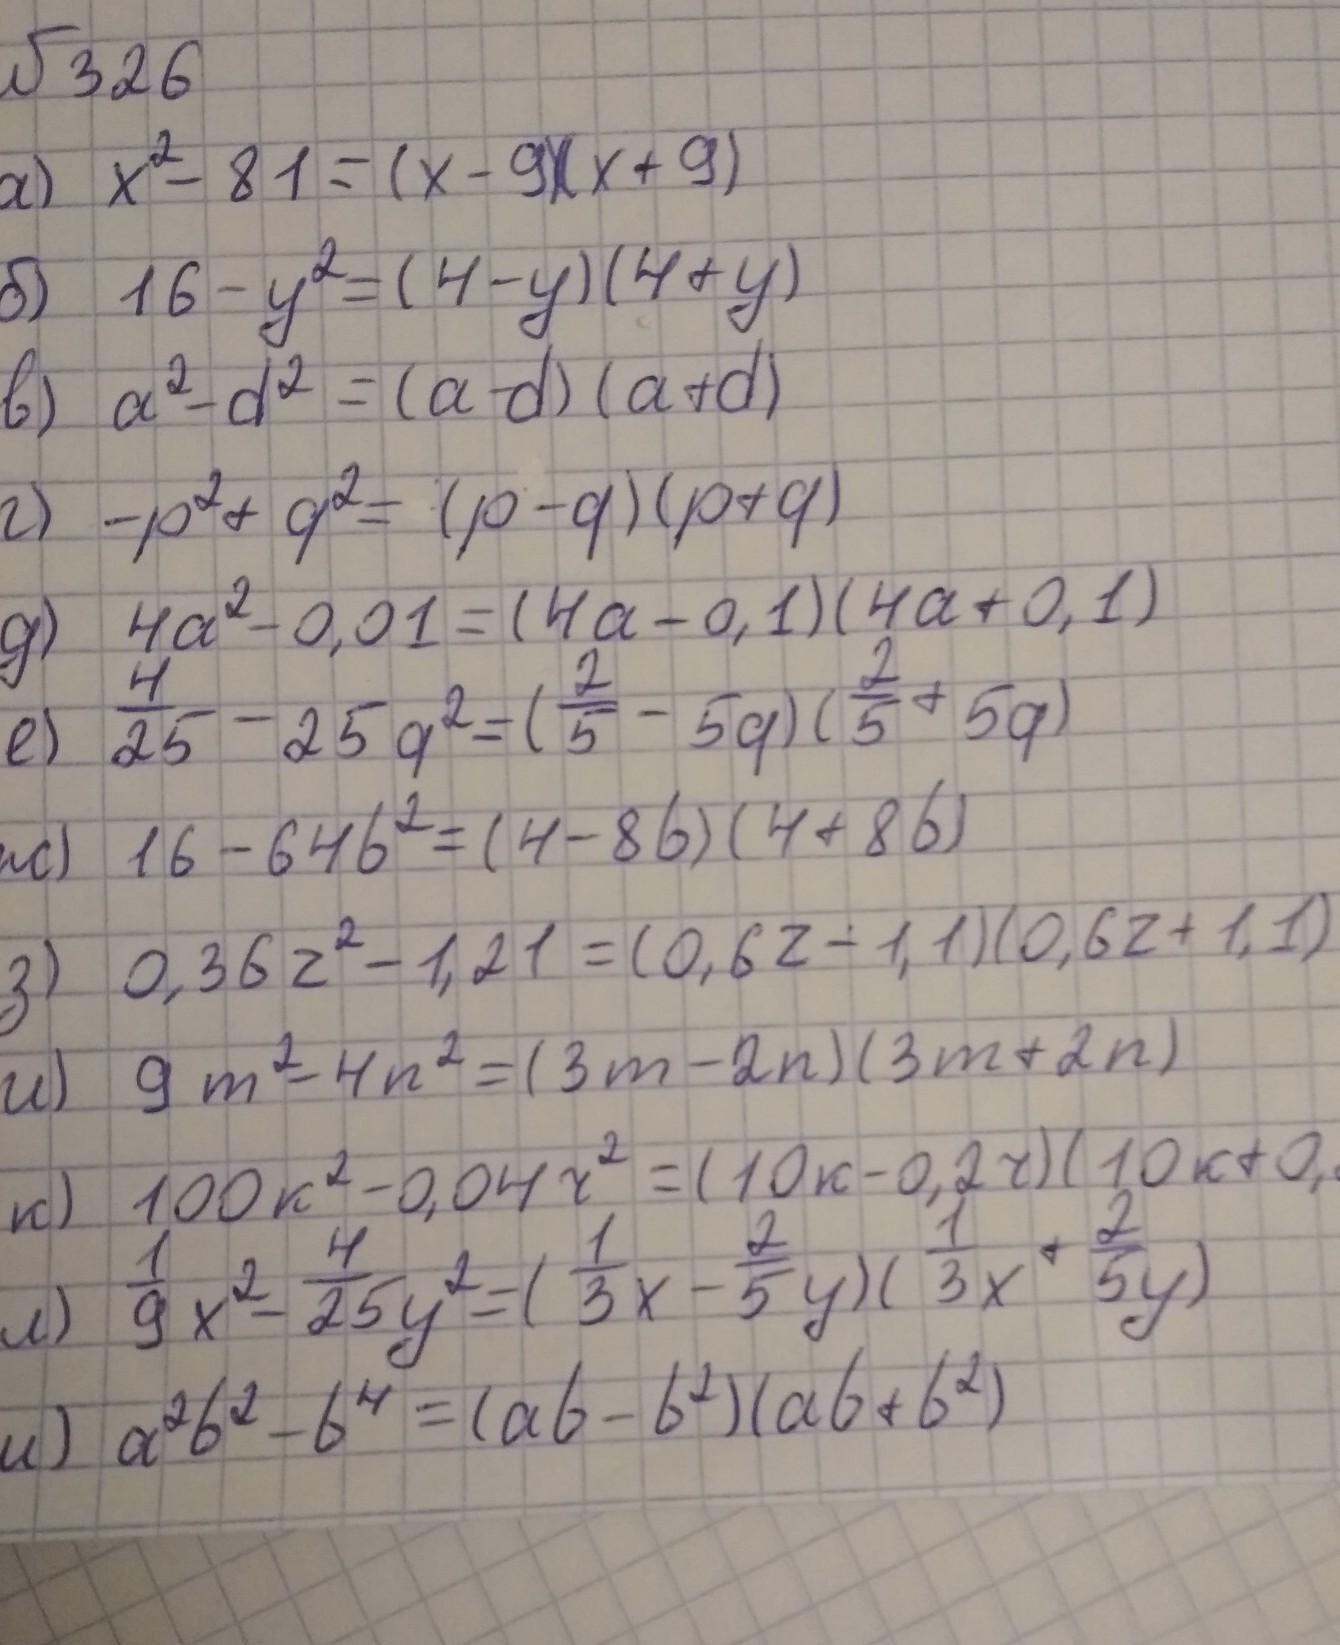 №326
а) x² - 81 = (x - 9)(x + 9)
б) 16 - y² = (4 - y)(4 + y)
в) a² - d² = (a - d)(a + d)
г) -p² + q² = (p - q)(p + q)
д) 4a² - 0,01 = (4a - 0,1)(4a + 0,1)
е) 4/25 - 25q² = (2/5 - 5q)(2/5 + 5q)
ж) 16 - 64b² = (4 - 8b)(4 + 8b)
з) 0,36z² - 1,21 = (0,6z - 1,1)(0,6z + 1,1)
и) 9m² - 4n² = (3m - 2n)(3m + 2n)
к) 100к² - 0,04r² = (10к - 0,2r)(10к + 0,
л) 1/9 x² - 4/25 y² = (1/3 x - 2/5 y)(1/3 x + 2/5 y)
и) a²b² - b⁴ = (ab - b²)(ab + b²)